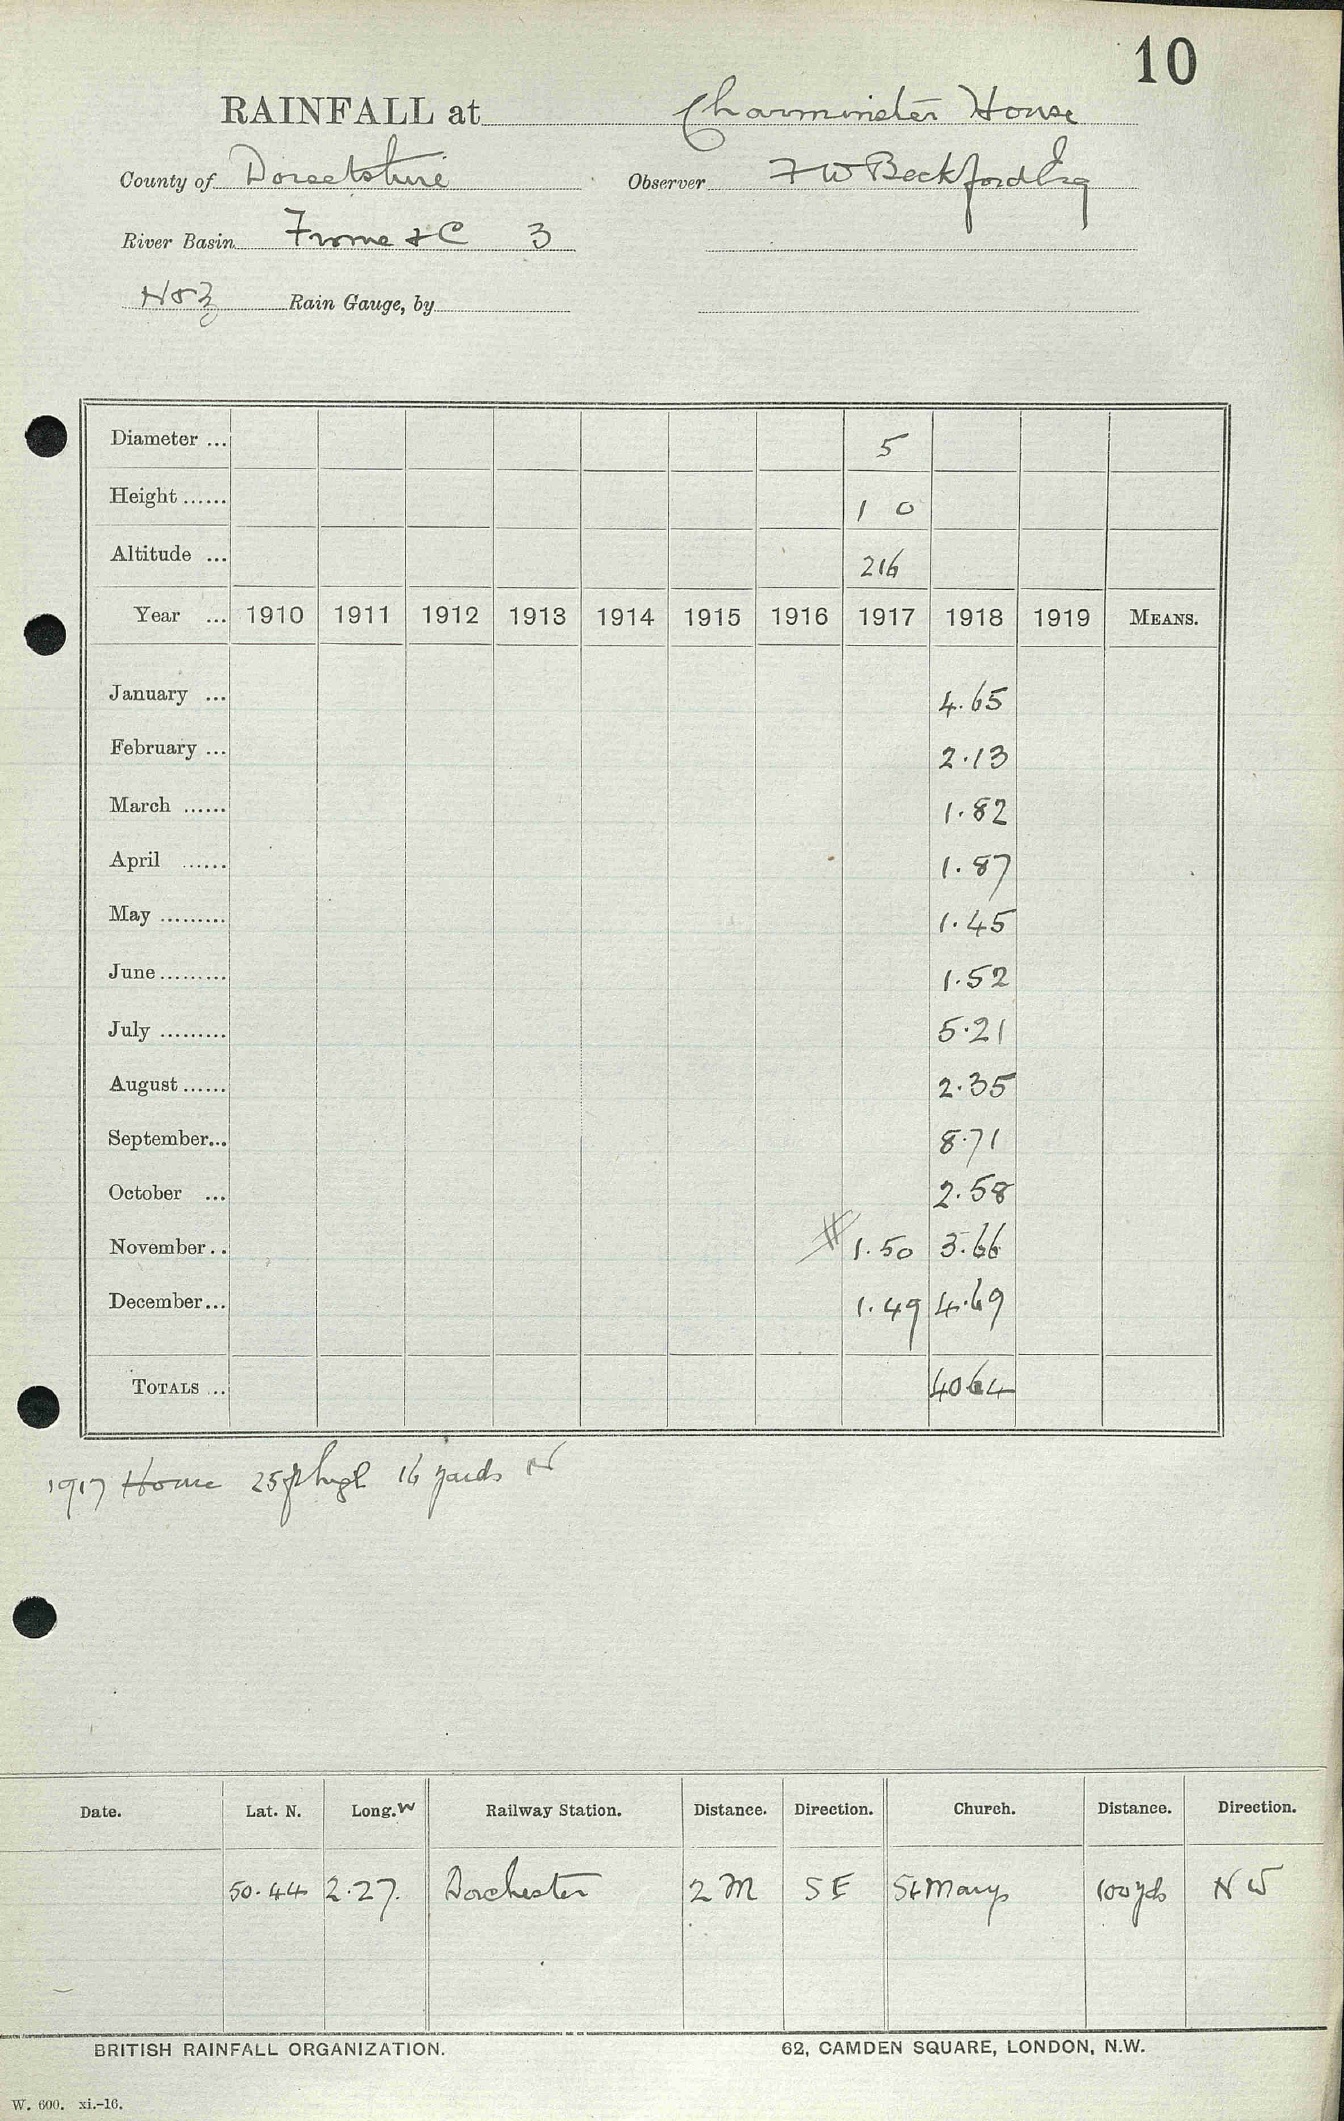 10
RAINFALL at Charminster House
County of Dorsetshire Observer F W Beckford Esq
River Basin Frome & C 3
No 3 Rain Gauge, by
Diameter ... 5
Height ...... 1 0
Altitude ... 216
Year ... 1910 1911 1912 1913 1914 1915 1916 1917 1918 1919 MEANS.
January ... 4.65
February ... 2.13
March ...... 1.82
April ...... 1.87
May ......... 1.45
June ......... 1.52
July ......... 5.21
August ...... 2.35
September... 8.71
October ... 2.58
November.. 1.50 3.66
December... 1.49 4.69
TOTALS ... 40.64
1917 House 25ft high 16 yards N
Date. Lat. N. Long. W Railway Station. Distance. Direction. Church. Distance. Direction.
50.44 2.27. Dorchester 2 M S E St Marys 100 yds N W
BRITISH RAINFALL ORGANIZATION. 62, CAMDEN SQUARE, LONDON, N.W.
W. 600. xi.-16.